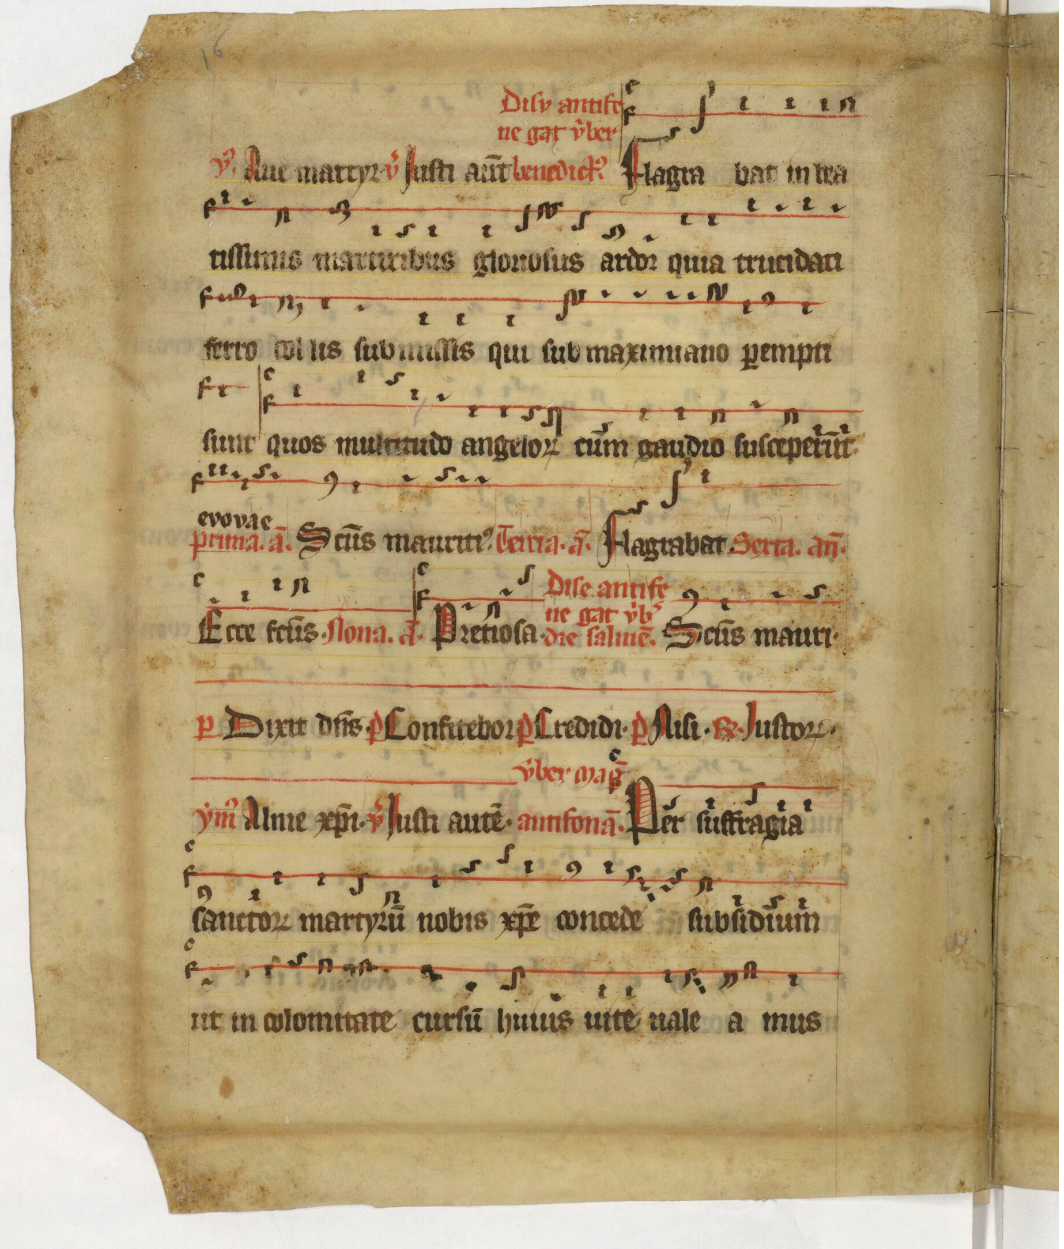 16
Disy antife
ne gat v̄ber
ẏ. Aue martyr v̄ Justi aūt benedict9 Flagra bat in bea
tissimis martiribus gloriosus ardor quia trucidati
ferro collis submissis qui sub maximiano ꝑempti
sunt quos multitudo angeloꝝ cūm gaudio susceperūt.
evovae
prima. ā. Scūs mauriti9. Tercia. ā. Flagrabat. Sexta. añ.
Ecce fcūs. Nona. ā. Pretiosa. Dise antife
ne gat v̄b
dre salmē. Scūs mauri.
ꝑ Dixit dn̄s. ꝑ Confitebor ꝑ Credidi. ꝑ Nisi. Justoꝝ.
v̄ber mag̃
ym̄ Alme xp̄i. v̄ Justi autē. antifonā. Per suffragia
sanctoꝝ martyrū nobis xp̄e concede subsidium
ut in colomitate cursū huius uite uale a mus